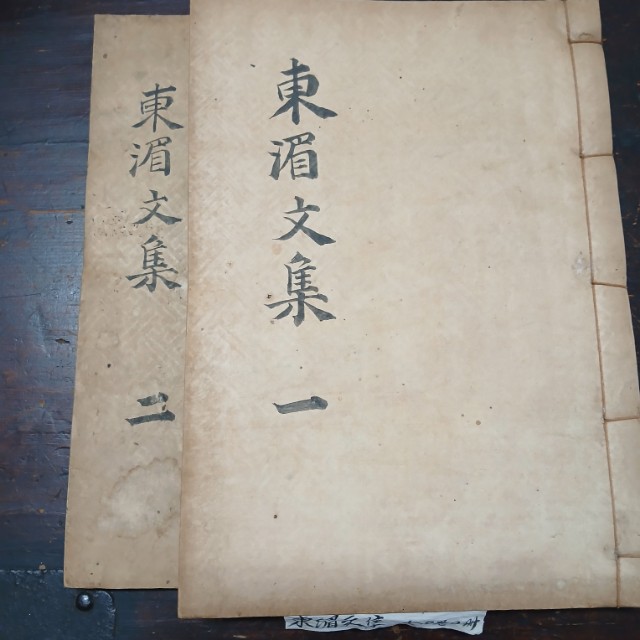 東湄文集 一
東湄文集 二
東湄文集